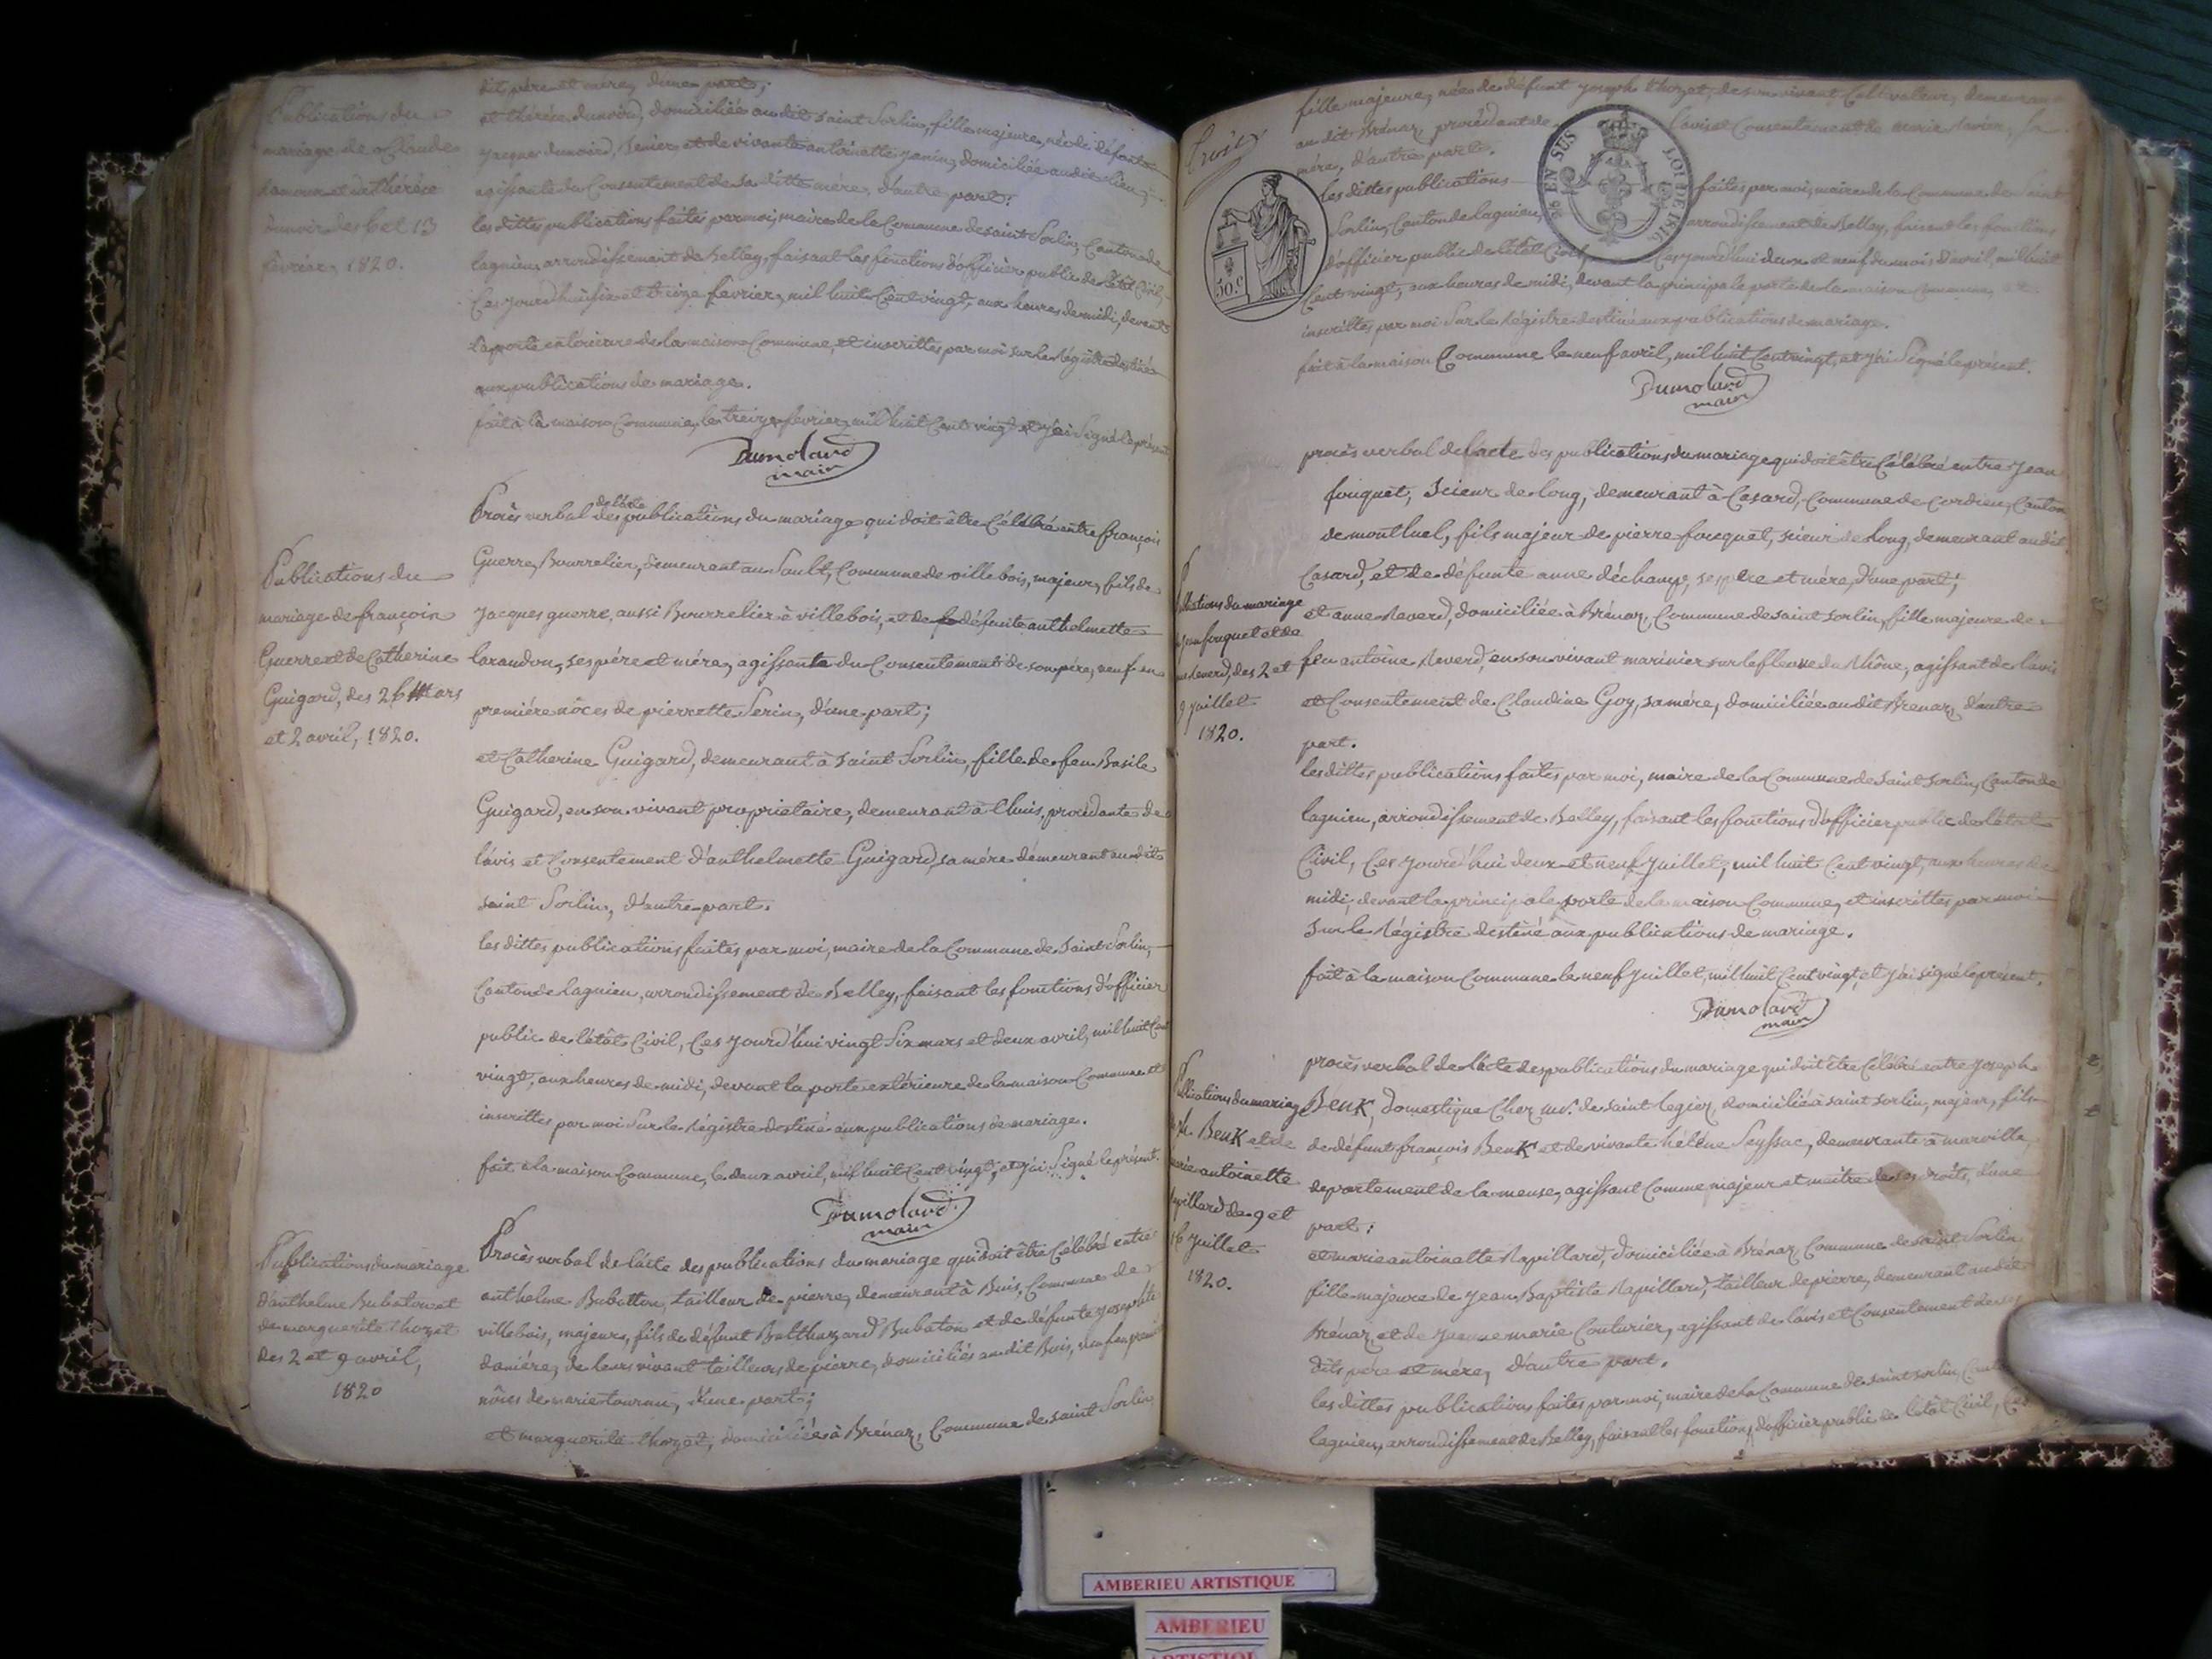 dit père et mère, d'une part;
et thérèse dunoird, domiciliée au dit saint Sorlin, fille majeure, née de défunt
jacques dunoird, et de vivante antoinette janin, domiciliée au dit lieu,
agissante du Consentement de sa ditte mère, d'autre part.
les dittes publications faites par moi, maire de la Commune de saint Sorlin, Canton de
lagnieu, arrondissement de Belley, faisant les fonctions d'officier public de l'état Civil,
Ces jourd'hui six et treize février, mil huit Cent vingt, aux heures de midi, devant
la porte extérieure de la maison Commune, et inscrittes par moi sur le Régistre destiné
aux publications de mariage.
fait à la maison Commune, le treize février, mil huit Cent vingt et j'ai Signé le présent
Dumolard
maire
Publications du
mariage de Claude
et de thérèse
dunoird des 6 et 13
février, 1820.
Procès verbal de l'acte des publications du mariage qui doit être Célébré entre françois
Guerre, Bourrelier, demeurant au Sault, Commune de villebois, majeur, fils de
Jacques guerre, aussi Bourrelier à villebois, et de défunte anthelmette
larandon, ses père et mère, agissante du Consentement de son père, veuf en
première nôces de pierrette Serin, d'une part;
et Catherine Guigard, demeurant à Saint Sorlin, fille de feu Basile
Guigard, en son vivant propriétaire, demeurant à lhuis, procédante de
l'avis et Consentement d'anthelmette Guigard, sa mère demeurant au dit
saint Sorlin, d'autre part.
les dittes publications faites par moi, maire de la Commune de Saint Sorlin,
Canton de lagnieu, arrondissement de Belley, faisant les fonctions d'officier
public de l'état Civil, Ces jourd'hui vingt Six mars et deux avril, mil huit Cent
vingt, aux heures de midi, devant la porte extérieure de la maison Commune et
inscrittes par moi Sur le Régistre destiné aux publications de mariage.
fait à la maison Commune, le deux avril, mil huit Cent vingt, et j'ai Signé le présent.
Dumolard
maire
Publications du
mariage de françois
Guerre et de Catherine
Guigard, des 26 Mars
et 2 avril, 1820.
Procès verbal de l'acte des publications du mariage qui doit être Célébré entre
anthelme Bubatton, tailleur de pierre, demeurant à Buis, Commune de
villebois, majeur, fils de défunt Balthazard Bubaton et de défunte josephte
danière, de leurs vivant tailleurs de pierre, domiciliés au dit Buis, veuf en première
nôces de marie tournu, d'une part;
et marguerite thozet, domiciliée à Brénaz, Commune de saint Sorlin
Publications du mariage
d'anthelme Bubaton et
de marguerite thozet
des 2 et 9 avril,
1820
trois
fille majeure, née de défunt joseph thozet, de son vivant Cultivateur, demeurant
au dit Brénaz, procédant de l'avis et Consentement de marie
mère, d'autre part.
les dittes publications faites par moi, maire de la Commune de Saint
Sorlin, Canton de lagnieu, arrondissement de Belley, faisant les fonctions
d'officier public de l'état Civil, Ces jourd'hui deux et neuf du mois d'avril, mil huit
Cent vingt, aux heures de midi, devant la principale porte de la maison Commune, et
inscrittes par moi Sur le Régistre destiné aux publications de mariage.
fait à la maison Commune le neuf avril, mil huit Cent vingt, et j'ai Signé le présent.
Dumolard
maire
50.c
EN SUS
LOI DE 1816
procès verbal de l'acte des publications du mariage qui doit être Célébré entre jean
fouquet, Scieur de long, demeurant à Casard, Commune de Cordieu, Canton
de montluel, fils majeur de pierre fouquet, scieur de long, demeurant au dit
Casard, et de défunte anne déchamp, ses père et mère, d'une part;
et anne Reverd, domiciliée à Brénaz, Commune de saint Sorlin, fille majeure de
feu antoine Reverd, en son vivant marinier sur le fleuve du Rhône, agissant de l'avis
et Consentement de Claudine Goy, sa mère, domiciliée au dit Brenaz, d'autre
part.
les dittes publications faites par moi, maire de la Commune de Saint Sorlin, Canton de
lagnieu, arrondissement de Belley, faisant les fonctions d'officier public de l'état
Civil, Ces jourd'hui deux et neuf Juillet, mil huit Cent vingt, aux heures de
midi, devant la principale porte de la maison Commune, et inscrittes par moi
Sur le Régistre déstiné aux publications de mariage.
fait à la maison Commune le neuf Juillet, mil huit Cent vingt, et j'ai signé le présent.
Dumolard
maire
blications du mariage
jean fouquet et de
Reverd, des 2 et
9 juillet
1820.
procès verbal de l'acte des publications du mariage qui doit être Célébré entre joseph
Benk, domestique Chez mr. de saint legier, domicilié à saint Sorlin, majeur, fils
de défunt françois Benk et de vivante hélène Seyssac, demeurante à marville,
département de la meuse, agissant Comme majeur et maître de ses droits, d'une
part;
et marie antoinette Rapillard, domiciliée à Brénaz Commune de saint Sorlin
fille majeure de jean Baptiste Rapillard, tailleur de pierre, demeurant au dit
Brénaz, et de jeanne marie Couturier, agissant de l'avis et Consentement de ses
dits père et mère, d'autre part.
les dittes publications faites par moi, maire de la Commune de saint Sorlin, Canton
lagnieu, arrondissement de Belley, faisant les fonctions d'officier public de l'état Civil, Ces
blications du mariage
Benk et de
marie antoinette
Rapillard des 9 et
16 juillet
1820.
AMBERIEU ARTISTIQUE
AMBERIEU
ARTISTIQUE